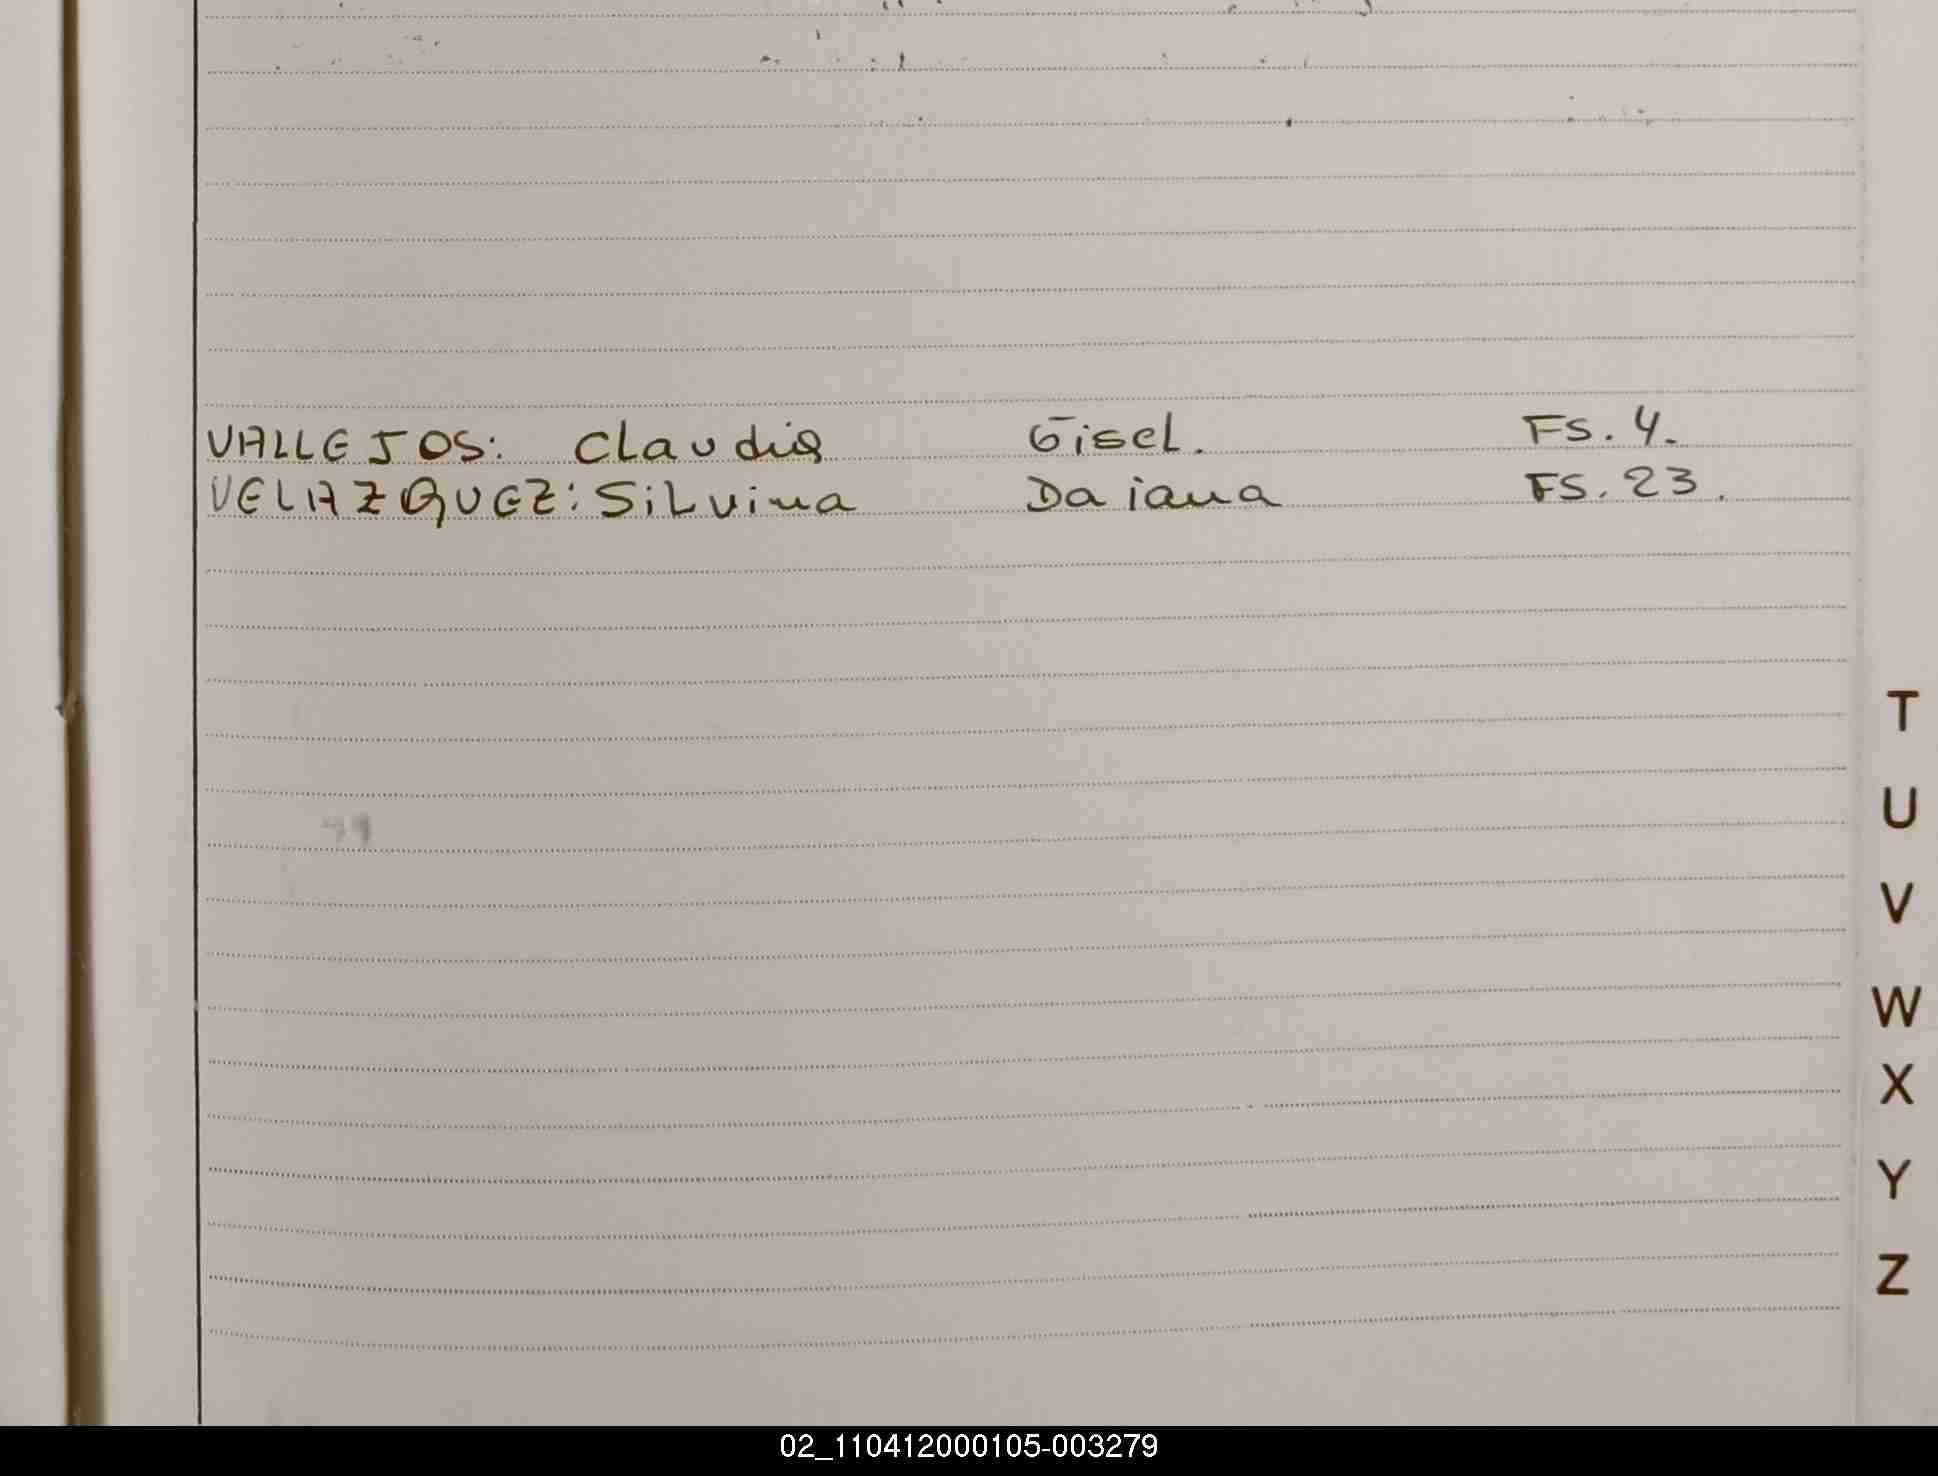 VALLEJOS: Claudia Gisel. FS. 4.
VELAZQUEZ: Silvina Daiana FS. 23.
T
U
V
W
X
Y
Z
02_110412000105-003279